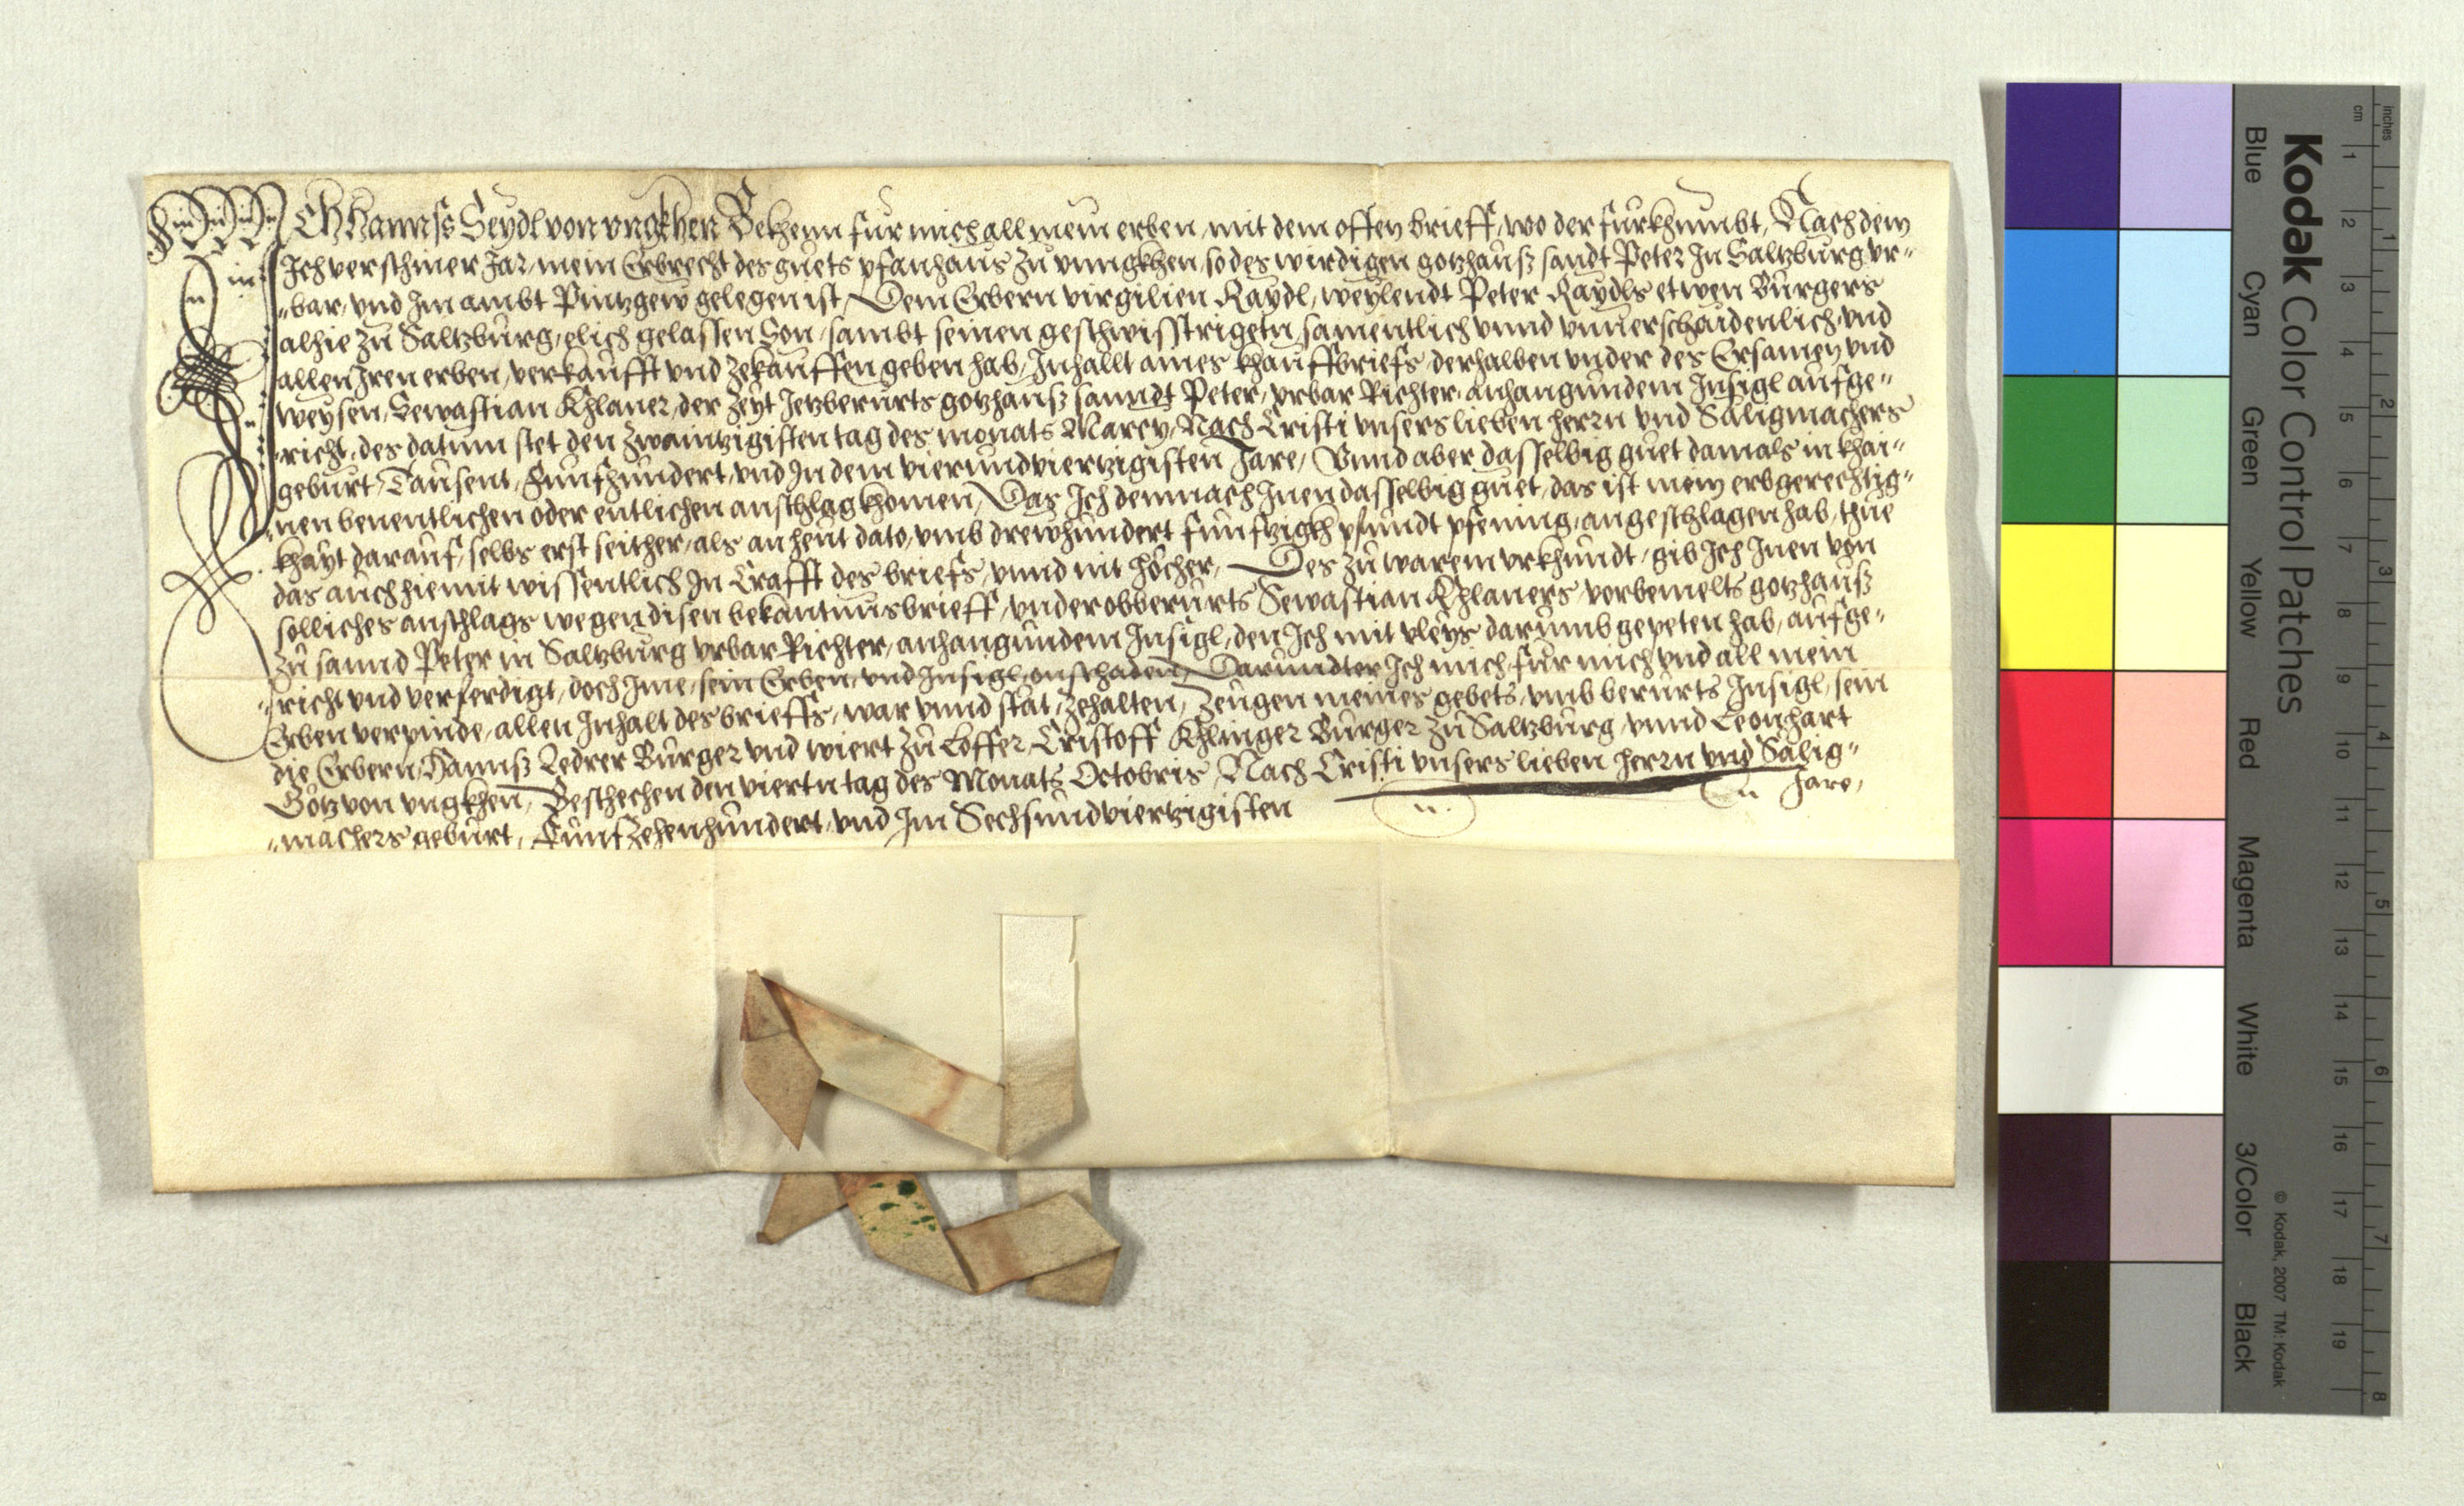 Ich Hannss Seydl von vngkhen Bekhenn fur mich all mein erben, mit dem offen brieff, wo der fürkhumbt, Nachdem
Ich verschiner Jar, mein Erbrecht des guets pfanhaus zu vnngkhen, so des wirdigen gotzhauß sandt Peter In Saltzburg vr-
-bar, vnd Im ambt Pintzgew gelegen ist, Dem Erbern virgilien Raydl, weylendt Peter Raydls etwen Burgers
alhie zu Saltzburg, elich gelassen Son, sambt seinen geschwisstrigetn, samentlich vnnd vnuerschaidenlich, vnd
allen Iren erben, verkaufft vnd zekauffen geben hab, Inhallt aines khauffbriefs, derhalben vnder des Ersamen vnd
weysen, Sewastian Khlaner, der zeyt Jetzberurts gotzhauß sanndt Peter, vrbar Richter, anhangundem Insigl aufge-
-richt, des datum stet den zwaintzigisten tag des monats Marcy, Nach Cristi vnsers lieben herrn vnd Saligmachers
geburt, Tausent, Funfhundert, vnd In dem vierundviertzigisten Jare, Vnnd aber dasselbig guet damals in khai-
-nen benentlichen oder entlichen anschlag khomen, Das Ich demnach Inen dasselbig guet, das ist mein erbgerechtig-
-khayt darauf, selbs erst seither, als an heut dato, vmb drewhundert funfzigkh pfundt pfening, angeschlagen hab, thue
das auch hiemit wissentlich In Crafft des briefs, vnnd nit höcher, Des zu warem vrkhundt, gib Ich Inen von
solliches anschlags wegen disen bekantnusbrieff, vnder obberurts Sewastian Khlaners, vorbemelts gotzhauß
zu sannd Peter in Saltzburg vrbar Richter, anhangundem Insigl, den Ich mit vleys darumb gepeten hab, aufge-
-richt vnd verferdigt, doch Ime, sein Erben, vnd Insigl, onschaden, Darundter Ich mich, für mich vnd all mein
Erben verpinde, allen Inhalt des brieffs, war vnnd stat, zehalten, Zeugen meines gebets, vmb berurts Insigl, sein
die Erbern, Hannß Ledrer Burger vnd wiert zu Loffer, Cristoff Khlinger Burger zu Saltzburg, vnnd Leonhart
Götz von vngkhen, Beschechen den viertn tag des Monats Octobris, Nach Cristi vnsers lieben herrn vnd Salig-
-machers geburt, Funfzehenhundert, vnd Im Sechsundviertzigisten Jare,
Kodak Color Control Patches
© Kodak, 2007 TM: Kodak
Blue Cyan Green Yellow Red Magenta White 3/Color Black
inches 1 2 3 4 5 6 7 8
cm 1 2 3 4 5 6 7 8 9 10 11 12 13 14 15 16 17 18 19